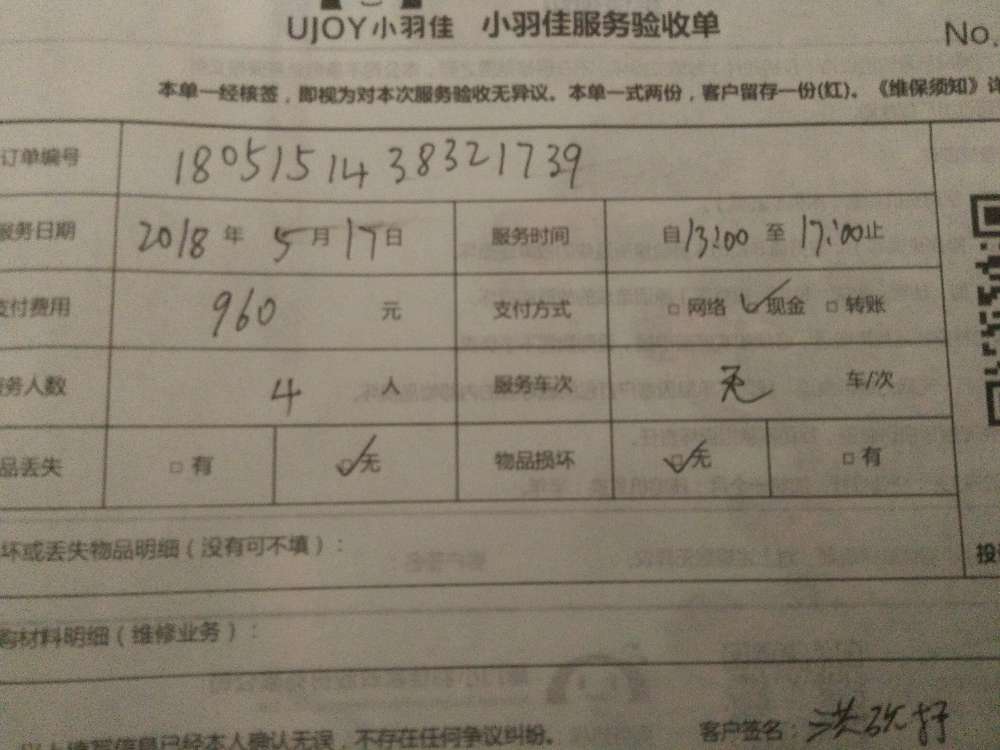 UJOY小羽佳 小羽佳服务验收单
No.
本单一经核签，即视为对本次服务验收无异议。本单一式两份，客户留存一份(红)。《维保须知》详
订单编号 180515143832 1739
服务日期 2018 年 5 月 17 日 服务时间 自 13:00 至 17:00 止
支付费用 960 元 支付方式 □ 网络 ✓ 现金 □ 转账
服务人数 4 人 服务车次 无 车/次
品丢失 □ 有 ☑ 无 物品损坏 ☑ 无 □ 有
坏或丢失物品明细（没有可不填）：
投
购材料明细（维修业务）：
以上填写信息已经本人确认无误，不存在任何争议纠纷。 客户签名：